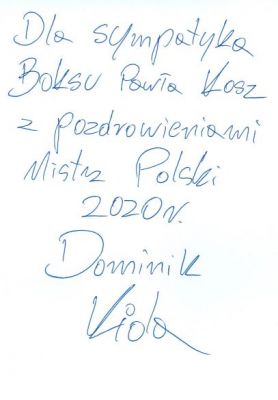 Dla sympatyka
Boksu Pawła Kosz
z pozdrowieniami
Mistrz Polski
2020r.
Dominik
Kida